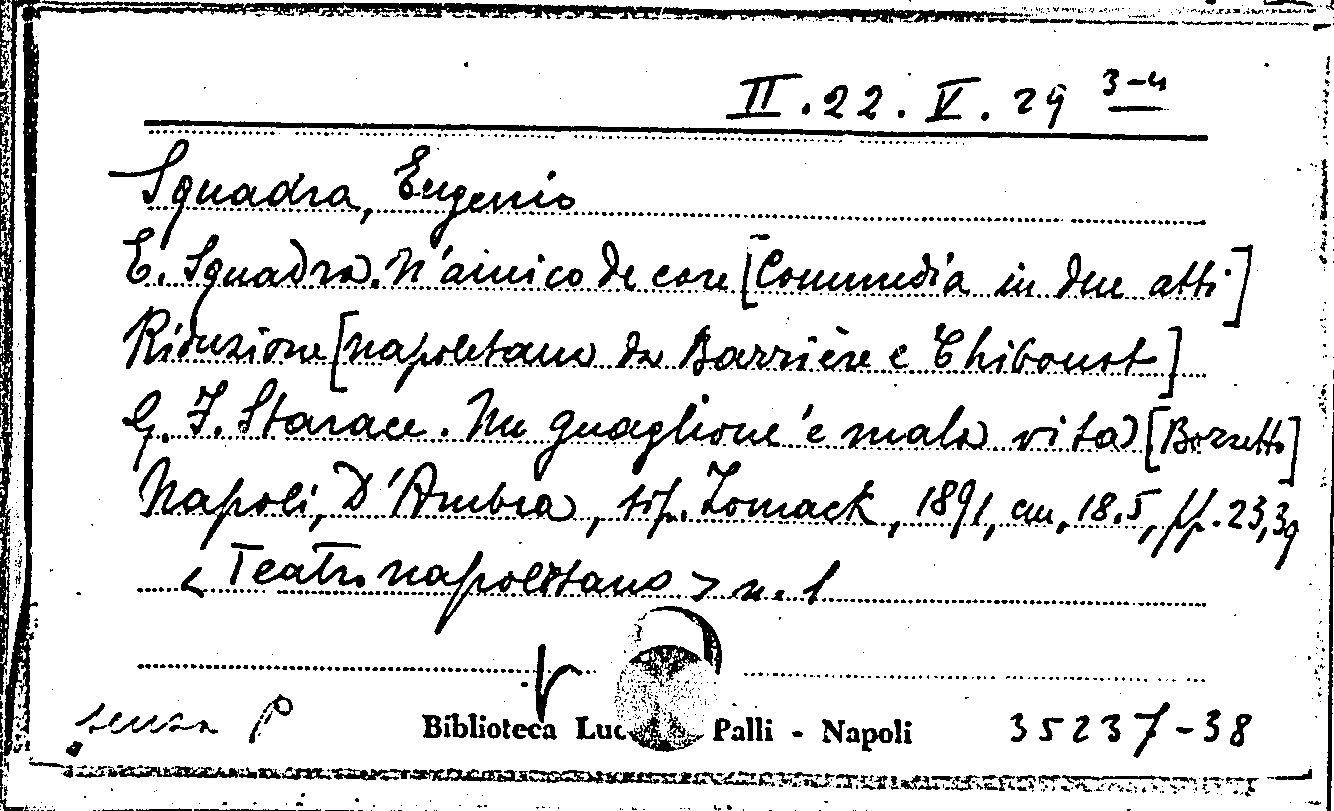 II.22.V.29 3-4
Squadra, Eugenio
E. Squadra. N'amico de core [Commedia in due atti]
Riduzione [napoletana da Barrière e Thiboust]
G. F. Starace. Nu guaglione 'e mala vita [Bozzetto]
Napoli, D'Ambra, tip. Tomack, 1891, cm. 18.5, pp. 23,39
<Teatro napoletano> n. 1
senza P
Biblioteca Luc Palli - Napoli 35237-38